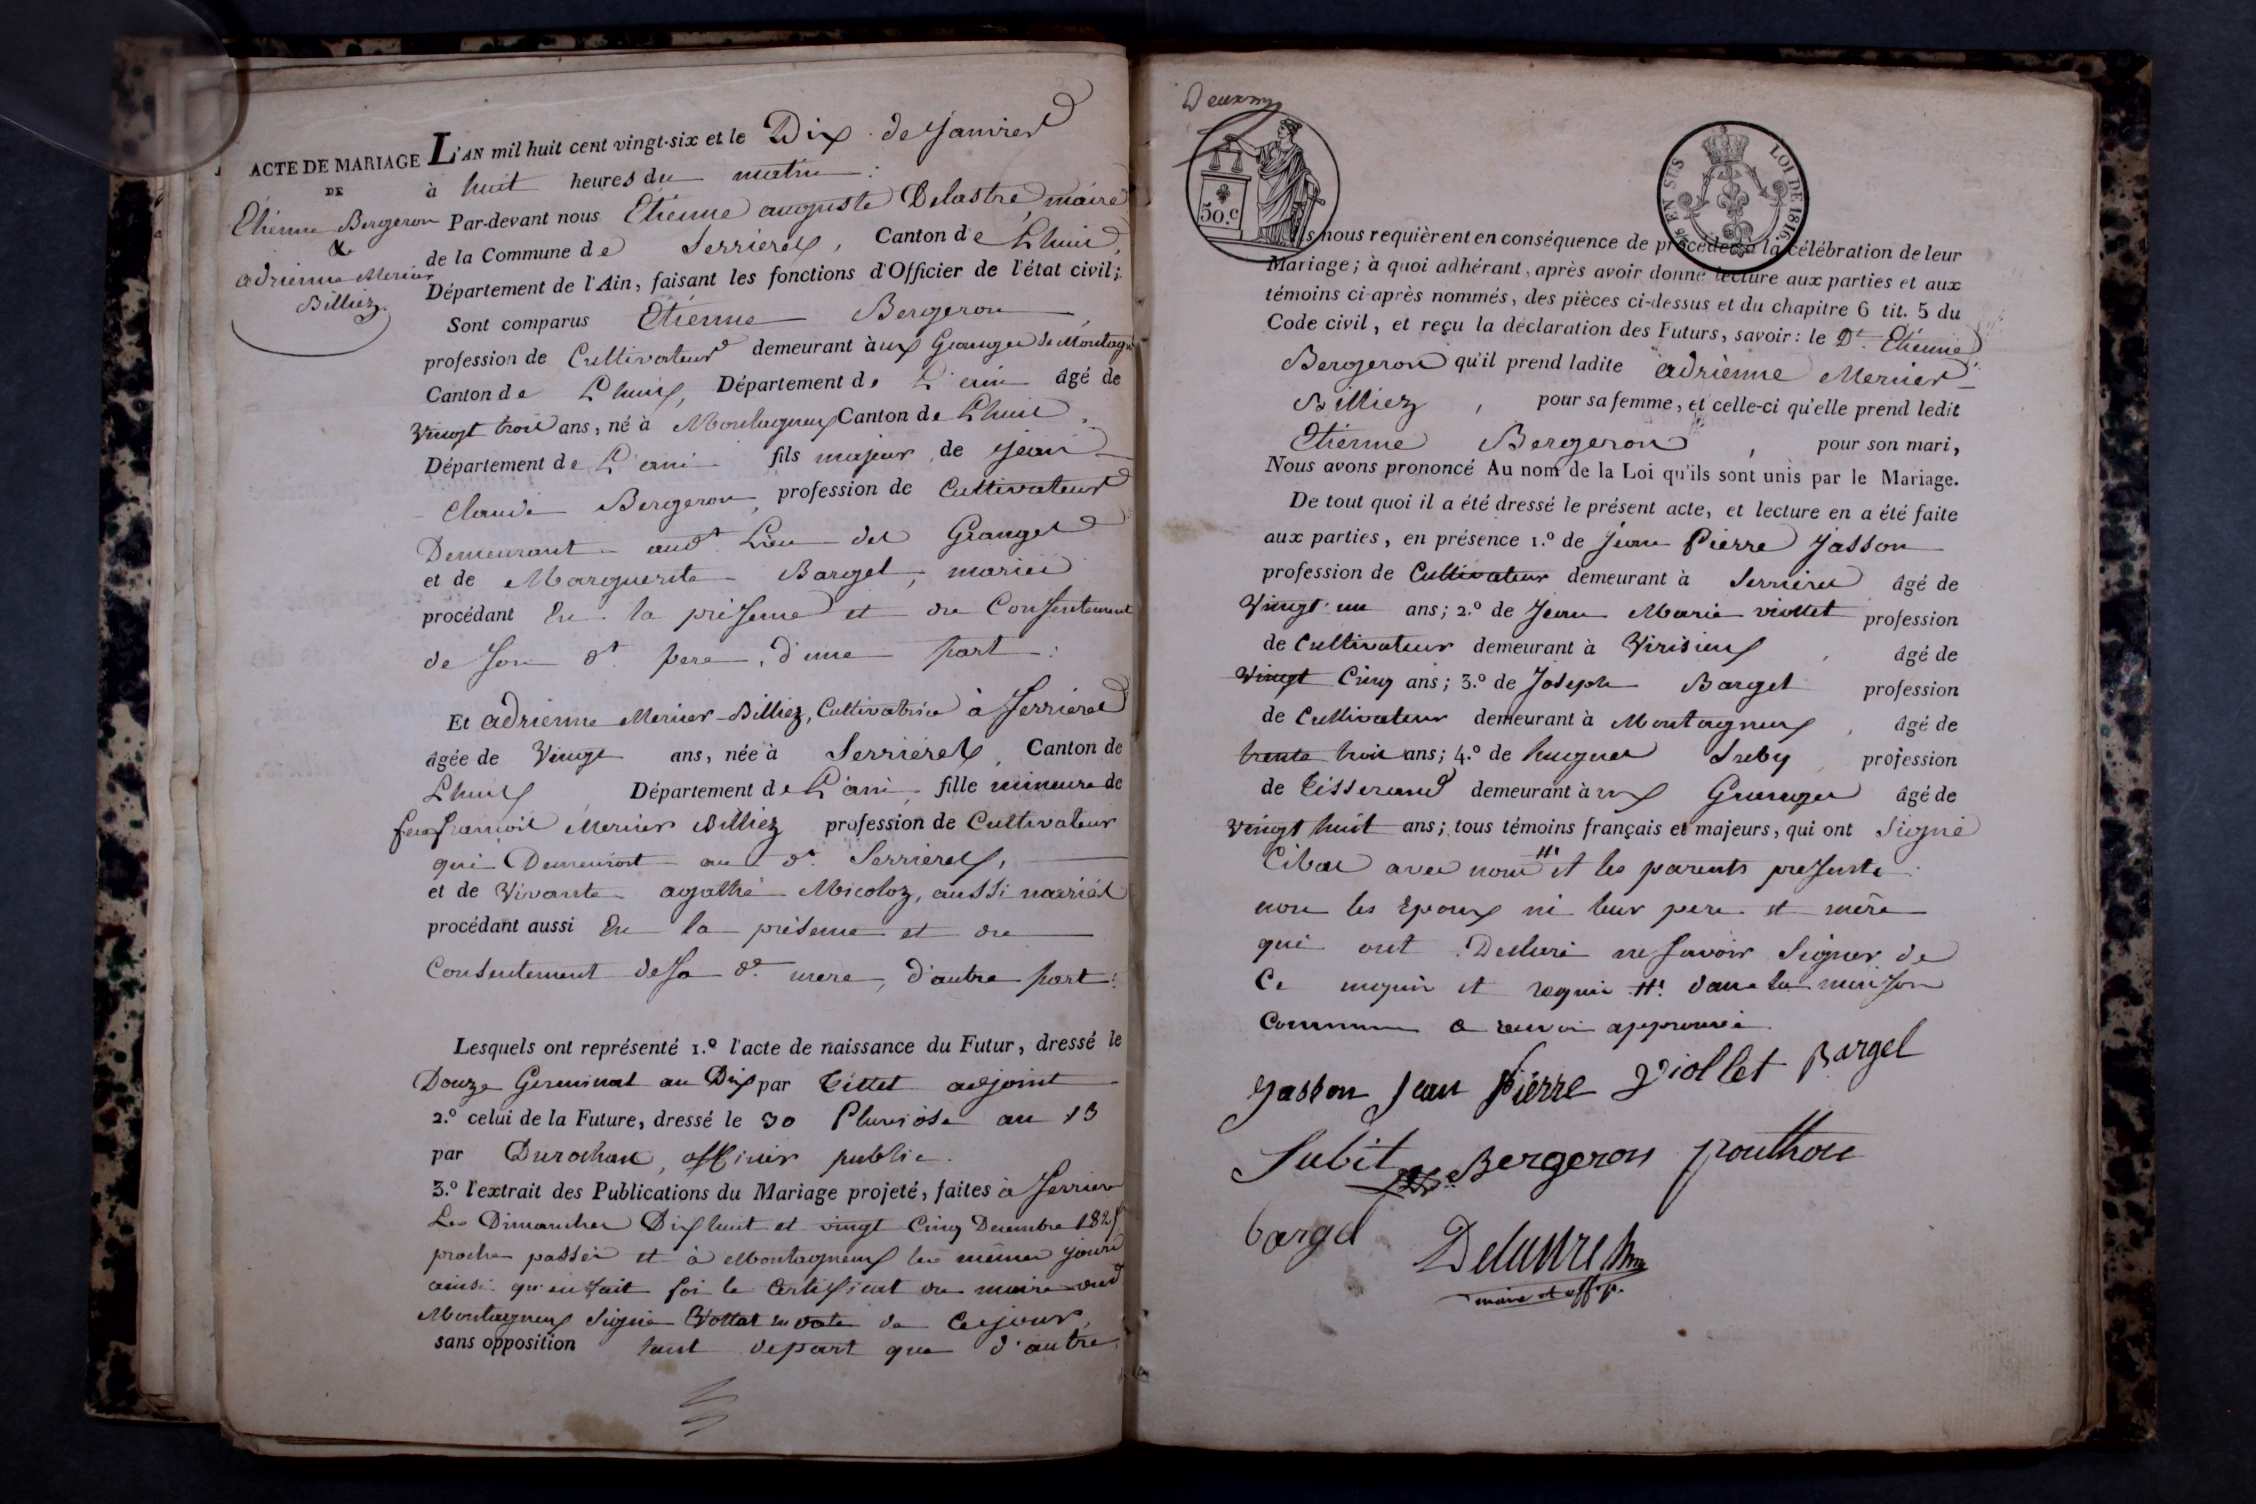 ACTE DE MARIAGE
DE
Etienne Bergeron
&
adrienne Mernier
Billiez
L'AN mil huit cent vingt-six et le Dix de Janvier
à huit heures du matin :
Par-devant nous Etienne auguste Delastre, maire
de la Commune de Serrieres, Canton de Lhuis,
Département de l'Ain, faisant les fonctions d'Officier de l'état civil;
Sont comparus Etienne Bergeron
profession de Cultivateur demeurant aux Granges de Montagn
Canton de Lhuis, Département de L'ain âgé de
Vingt trois ans, né à Montagneux Canton de Lhuis
Département de L'ain fils majeur de Jean
Claude Bergeron, profession de Cultivateur
Demeurant aud.t Lieu des Granges
et de Marguerite Barget, mariés
procédant En la présence et du Consentement
de son d.t pere, d'une part :
Et adrienne Mernier-Billiez, Cultivatrice à Serrieres
âgée de Vingt ans, née à Serrieres, Canton de
Lhuis, Département de L'ain, fille mineure de
feu francois Mernier Billiez profession de Cultivateur
qui Demeuroit au d.t Serrieres,
et de Vivante agathe Micoloz, aussi mariés
procédant aussi En la présence et du
Consentement de sa d.e mere, d'autre part :
Lesquels ont représenté 1.º l'acte de naissance du Futur, dressé le
Douze Germinal an Dix par Tillet adjoint
2.º celui de la Future, dressé le 30 Pluviôse an 13
par Durochat, officier public.
3.º l'extrait des Publications du Mariage projeté, faites à Serrieres
Les Dimanches Dix huit et vingt Cinq Decembre 1825
proche passés et à Montagneux les mêmes jours
ainsi qu'en fait foi le Certificat du maire dud
Montagneux Signé Vottat en date de Cejour,
sans opposition tant depart que d'autre
Deuxm
50.c
EN SUS
LOI DE 1816.
Ils nous requièrent en conséquence de procéder à la célébration de leur
Mariage; à quoi adhérant, après avoir donné lecture aux parties et aux
témoins ci-après nommés, des pièces ci-dessus et du chapitre 6 tit. 5 du
Code civil, et reçu la déclaration des Futurs, savoir: le D.t Etienne
Bergeron qu'il prend ladite adrienne Mernier
Billiez, pour sa femme, et celle-ci qu'elle prend ledit
Etienne Bergeron, pour son mari,
Nous avons prononcé Au nom de la Loi qu'ils sont unis par le Mariage.
De tout quoi il a été dressé le présent acte, et lecture en a été faite
aux parties, en présence 1.º de Jean Pierre Jasson
profession de Cultivateur demeurant à Serrieres âgé de
Vingt un ans; 2.º de Jean Marie Viollet profession
de Cultivateur demeurant à Virisieux âgé de
Vingt Cinq ans; 3.º de Joseph Barget profession
de Cultivateur demeurant à Montagneux, âgé de
trente trois ans; 4.º de hugues Suby profession
de Tisserand demeurant aux Granges âgé de
Vingt huit ans; tous témoins français et majeurs, qui ont Signé
avec nous et les parents presents
non les Epoux ni leur pere et mère
qui ont Declaré ne savoir Signer de
Ce enquis et requis dans la maison
Commune renvoi approuvé
Jasson Jean Pierre Viollet Bargel
Subit Bergeron pouthou
bargel Delastre
maire et off. p.